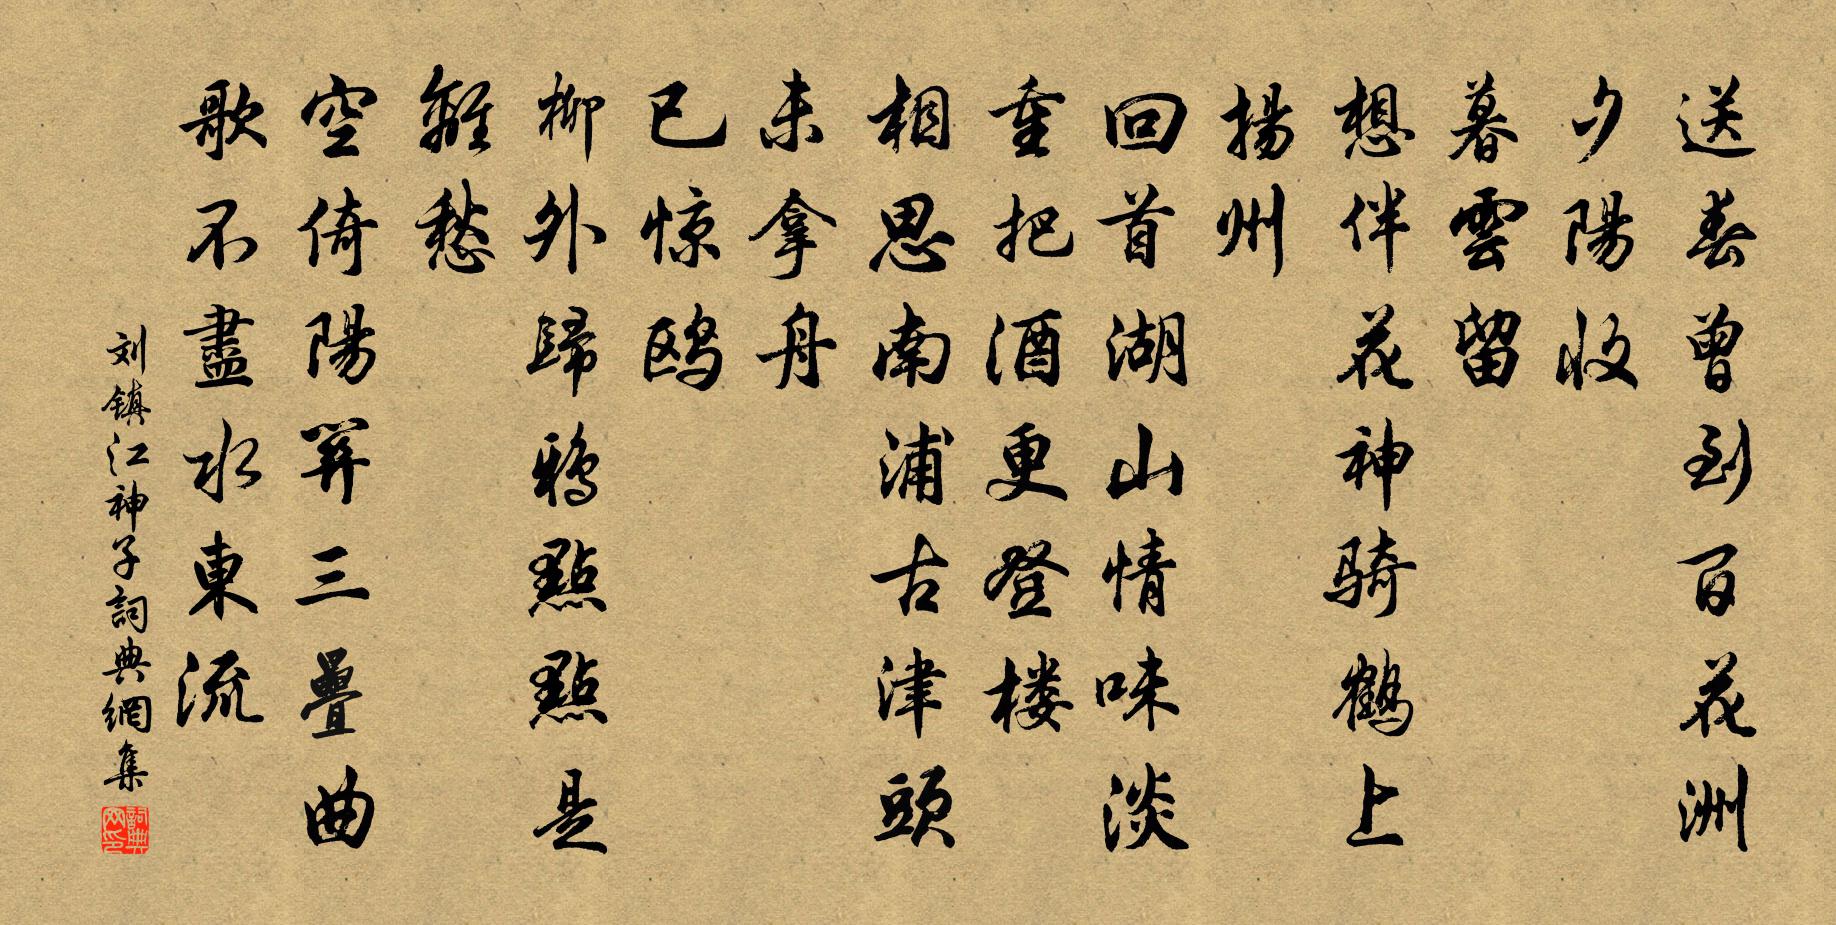 送春曾到百花洲
夕陽收
暮雲留
想伴花神骑鹤上
揚州
回首湖山情味淡
重把酒更登楼
相思南浦古津頭
未拿舟
已惊鸥
柳外歸鸦點點是
離愁
空倚陽關三疊曲
歌不盡水東流
刘镇江神子詞典網集
詞典网印